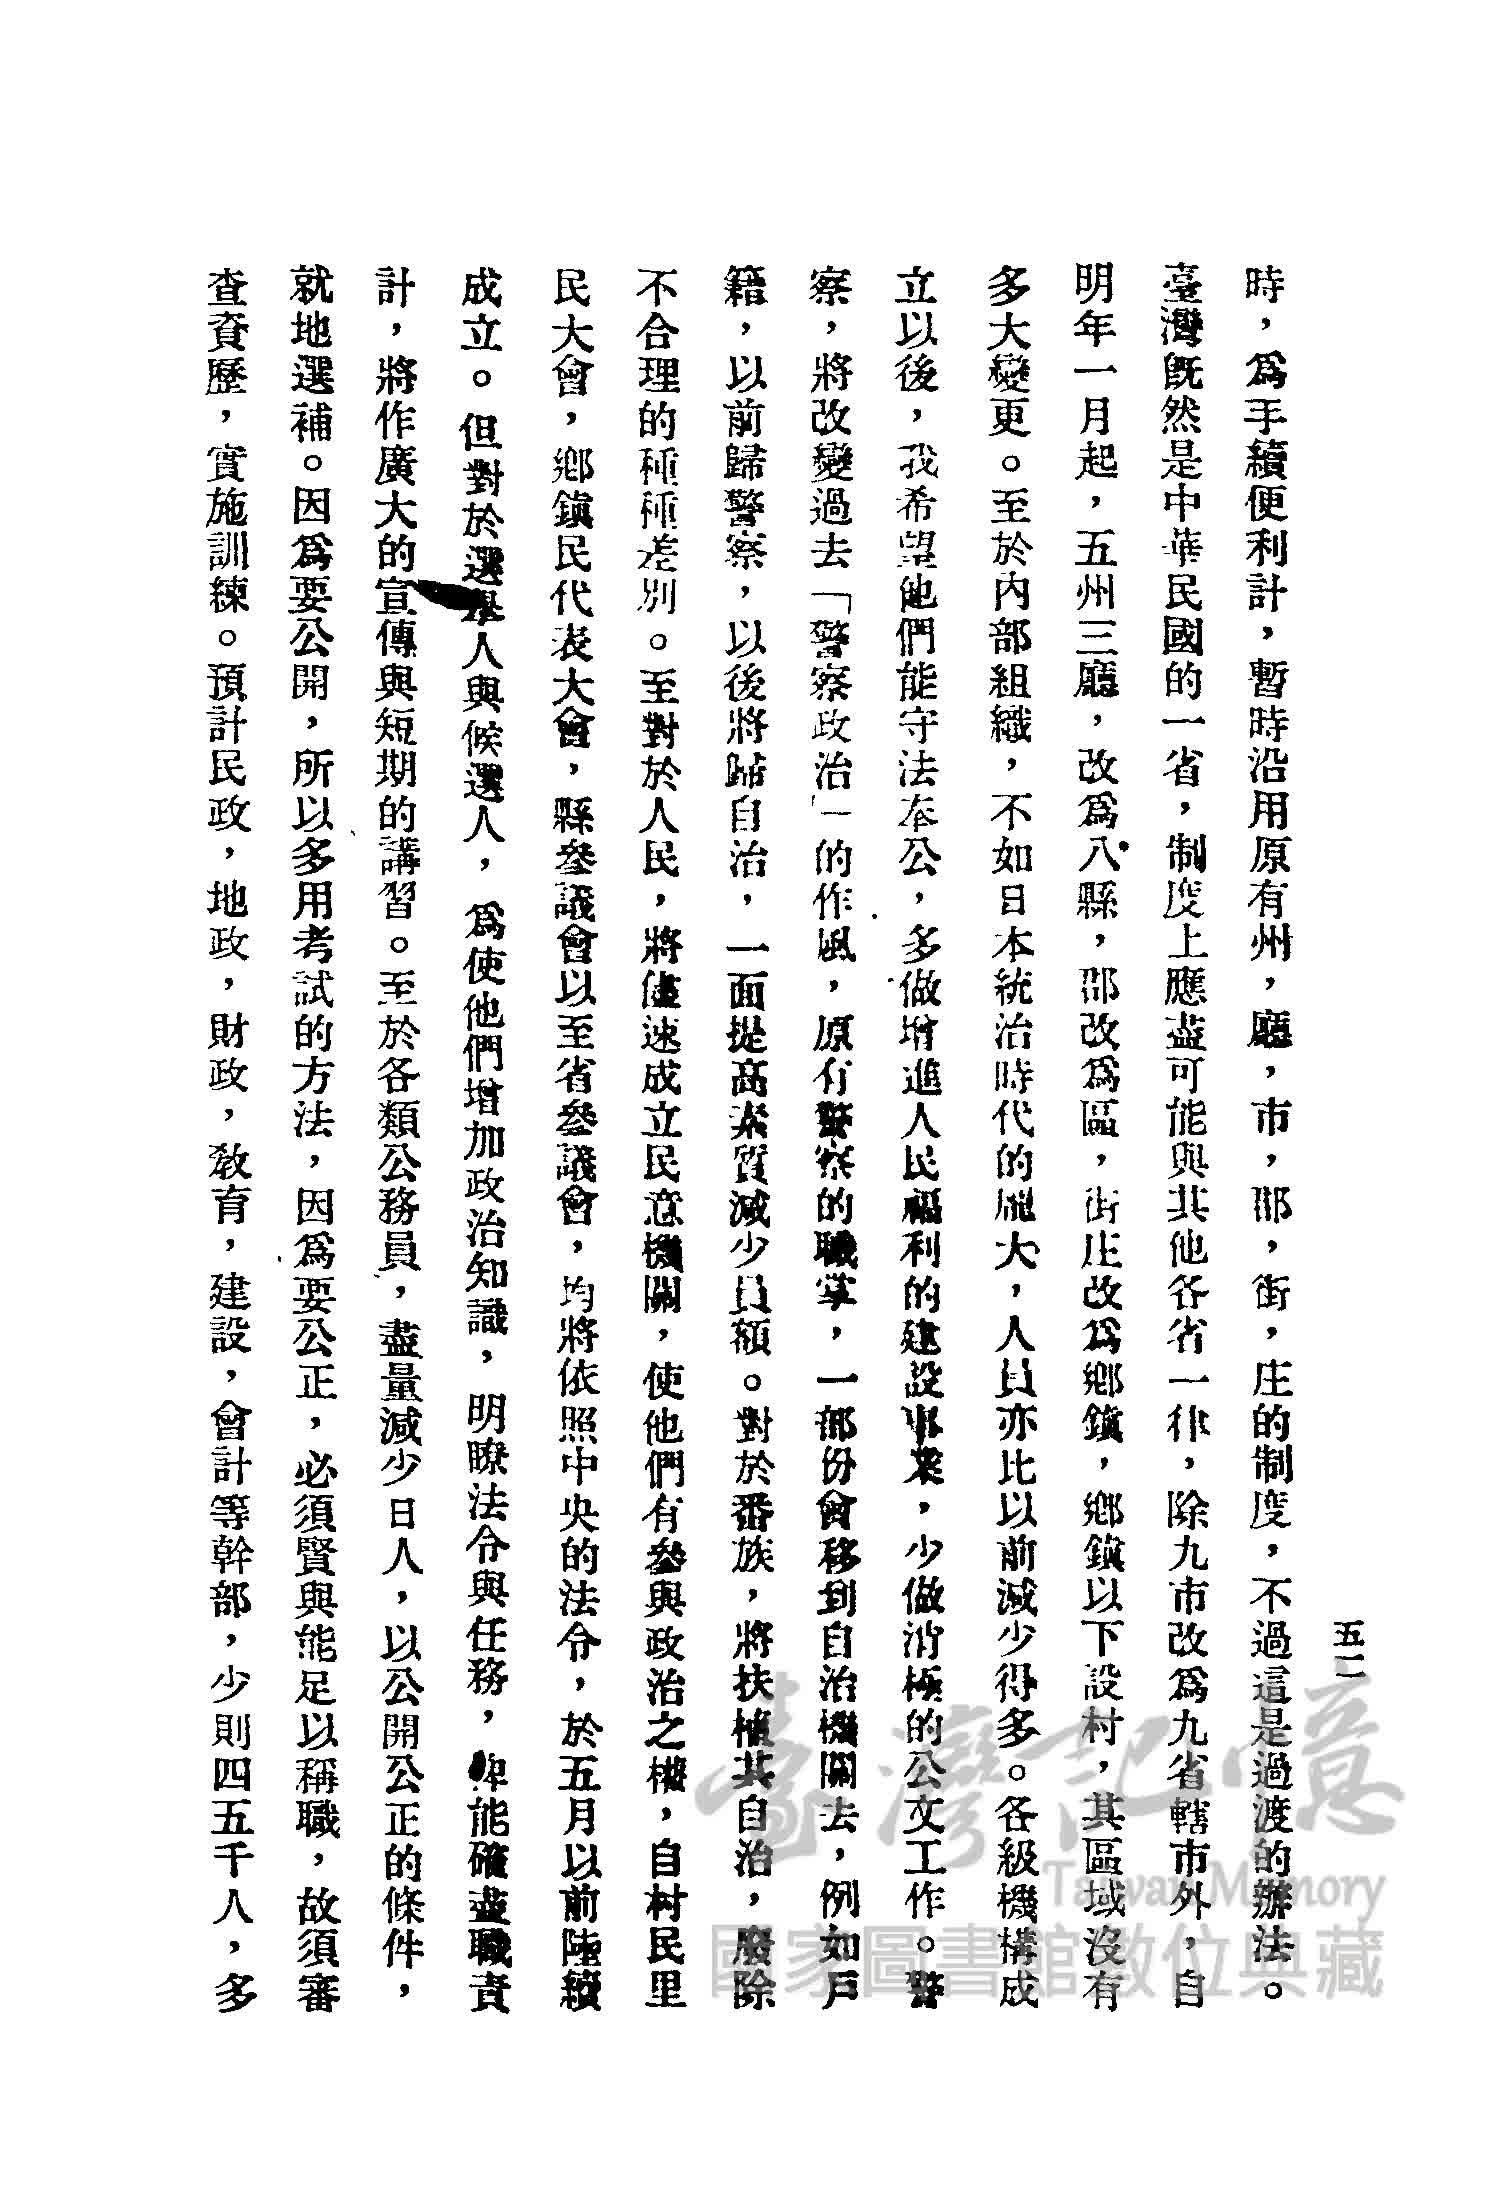 五二
時，爲手續便利計，暫時沿用原有州，廳，市，郡，街，庄的制度，不過這是過渡的辦法。
臺灣旣然是中華民國的一省，制度上應盡可能與其他各省一律，除九市改爲九省轄市外，自
明年一月起，五州三廳，改爲八縣，郡改爲區，街庄改爲鄉鎮，鄉鎮以下設村，其區域沒有
多大變更。至於內部組織，不如日本統治時代的龐大，人員亦比以前減少得多。各級機構成
立以後，我希望他們能守法奉公，多做增進人民福利的建設事業，少做消極的公文工作。警
察，將改變過去「警察政治」的作風，原有警察的職掌，一部份會移到自治機關去，例如戶
籍，以前歸警察，以後將歸自治，一面提高素質減少員額。對於番族，將扶植其自治，廢除
不合理的種種差別。至對於人民，將儘速成立民意機關，使他們有參與政治之權，自村民里
民大會，鄉鎮民代表大會，縣參議會以至省參議會，均將依照中央的法令，於五月以前陸續
成立。但對於選舉人與候選人，爲使他們增加政治知識，明瞭法令與任務，俾能確盡職責
計，將作廣大的宣傳與短期的講習。至於各類公務員，盡量減少日人，以公開公正的條件，
就地選補。因爲要公開，所以多用考試的方法，因爲要公正，必須賢與能足以稱職，故須審
查資歷，實施訓練。預計民政，地政，財政，教育，建設，會計等幹部，少則四五千人，多
臺灣記憶
Taiwan Memory
國家圖書館數位典藏